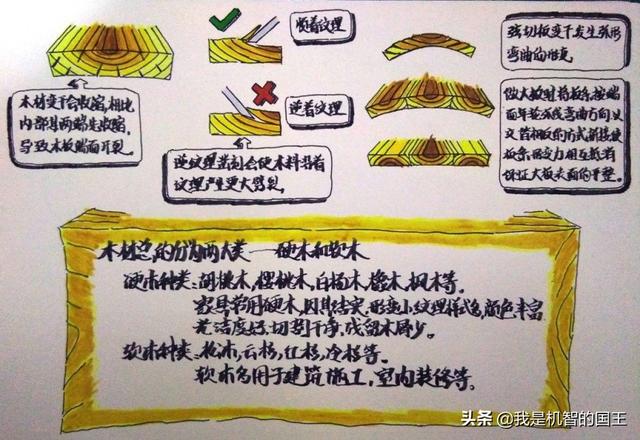 顺着纹理
逆着纹理
木材变干会收缩,相比
内部其两端先收缩,
导致木板端面开裂。
逆纹理凿刻会使木料沿着
纹理产生更大劈裂
弦切板变干发生弧形
弯曲的形变
做大板时将板条按端
面年轮弧线弯曲方向以
交替相板的方式拼接使
板条应力相互抵消
保证大板表面的平整。
木材总的分为两大类——硬木和软木
硬木种类:胡桃木,樱桃木,白杨木,橡木,枫木等。
家具常用硬木,因其结实,形变小纹理样式多,颜色丰富
光洁度好,切割干净,残留木屑少。
软木种类:松木,云杉,红杉,冷杉等。
软木多用于建筑施工,室内装修等。
头条 @我是机智的国王